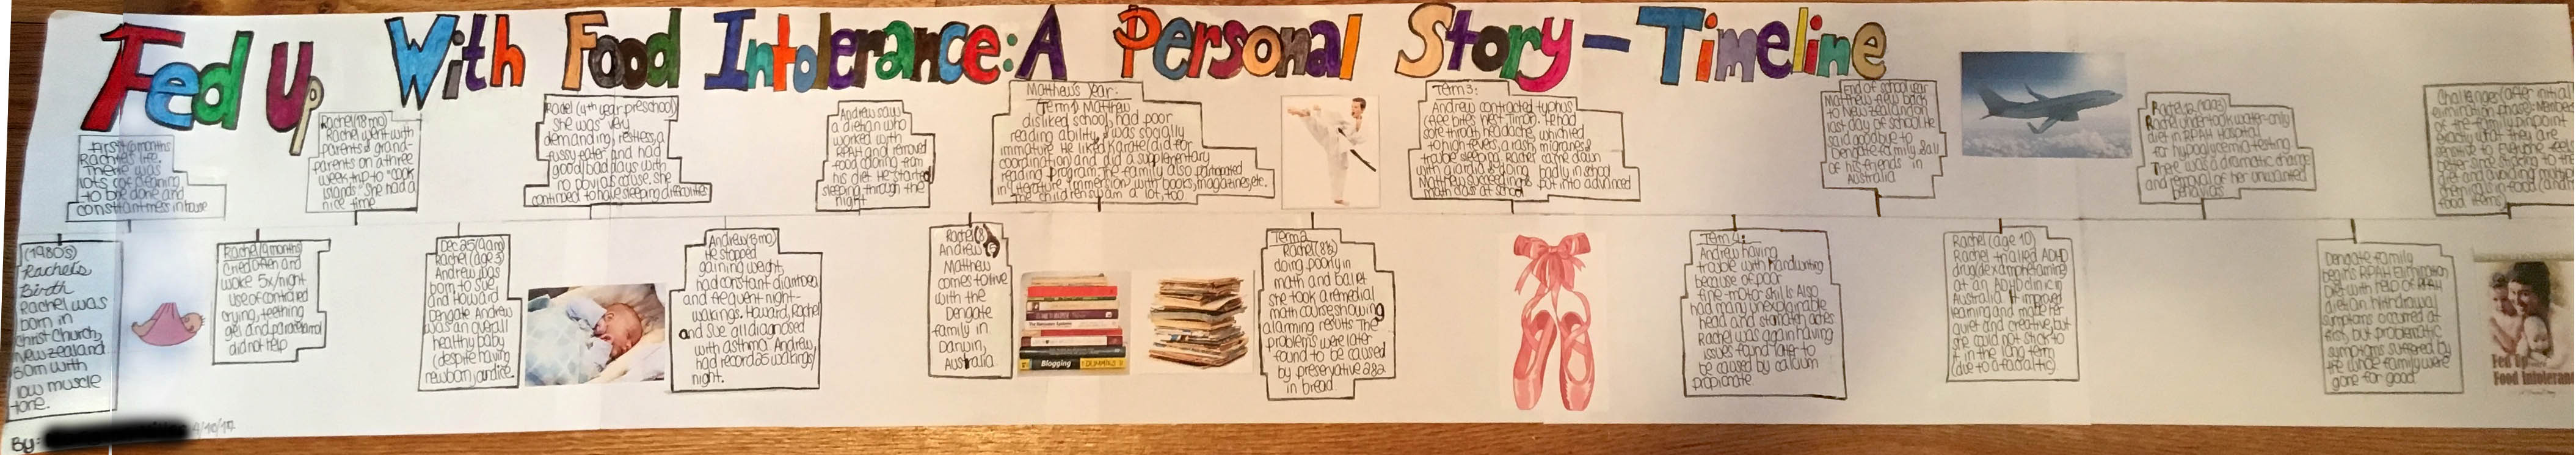 Fed Up With Food Intolerance: A Personal Story - Timeline
(1980s)
Rachel's
Birth
Rachel was
born in
Christchurch,
New Zealand
born with
low muscle
tone.
First 6 months
Rachel's life.
There was
lots of cleaning
to be done and
constant mess in house
Rachel (9 months)
cried often and
woke 5x/night
use of controlled
crying, teething
gel and paracetamol
did not help
Rachel (18 mo)
Rachel went with
parents & grand-
parents on a three
week trip to "Cook
Islands" She had a
nice time
Dec 25 (9am)
Rachel (age 3)
Andrew was
born to Sue
and Howard
Dengate Andrew
was an overall
healthy baby
(despite having
newborn jaundice.
Racel (4th year preschool)
She was very
demanding, restless, a
fussy eater and had
good/bad days with
no obvious cause. She
continued to have sleeping difficulties
Andrew (13 mo)
He stopped
gaining weight,
had constant diarrhoea
and frequent night-
wakings. Howard, Rachel
and Sue all diagnosed
with asthma Andrew
had record 25 wakings/
night.
Andrew says
a dietian who
worked with
RPAH and removed
food coloring from
his diet. He started
sleeping through the
night
Rachel (8)
Andrew
Matthew
comes to live
with the
Dengate
family in
Darwin,
Australia
Matthew's Year:
(Term 1) Matthew
disliked school, had poor
reading ability, & was socially
immature. He liked Karate (did for
coordination) and did a supplementary
reading program. The family also participated
in literature immersion with books, magazines, etc.
The children swam a lot, too.
Blogging
DUMMIES
Term 2
Rachel (8½)
doing poorly in
math and ballet
she took a remedial
math course showing
alarming results The
problems were later
found to be caused
by preservative 282
in bread
Term 3:
Andrew contracted typhus
(flee bites near Timor). He had
sore throat, headache, which led
to high fevers, a rash, migranes &
trouble sleeping. Rachel came down
with giardia & going badly in school
Matthew succeeding & put into advanced
math class at school
Term 4:
Andrew having
trouble with handwriting
because of poor
fine-motor skills Also
had many unexplainable
head and stomach aches
Rachel was again having
issues found later to
be caused by calcium
propionate
End of school year
Matthew flew back
to New Zealand on
last day of school. He
said goodbye to
Dengate family & all
of his friends in
Australia
Rachel (age 10)
Rachel trialled ADHD
drug (dexamphetamine)
at an ADHD clinic in
Australia It improved
learning and made her
quiet and creative, but
she could not stick to
it in the long term
(due to a facial tic)
Rachel undertook water-only
diet in RPAH Hospital
for hypoglycemia testing
There was a dramatic change
and removal of her unwanted
behaviors
Dengate family
begins RPAH Elimination
Diet with help of RPAH
dietian Withdrawal
symptoms occurred at
first, but problematic
symptoms suffered by
the whole family were
gone for good
Challenges (after initial
elimination phase): Members
of the family pinpoint
exactly what they are
sensitive to Everyone feels
better since sticking to the
diet and avoiding multiple
chemicals in food (and
food items)
Fed Up
Food Intolerance
By:
4/10/17